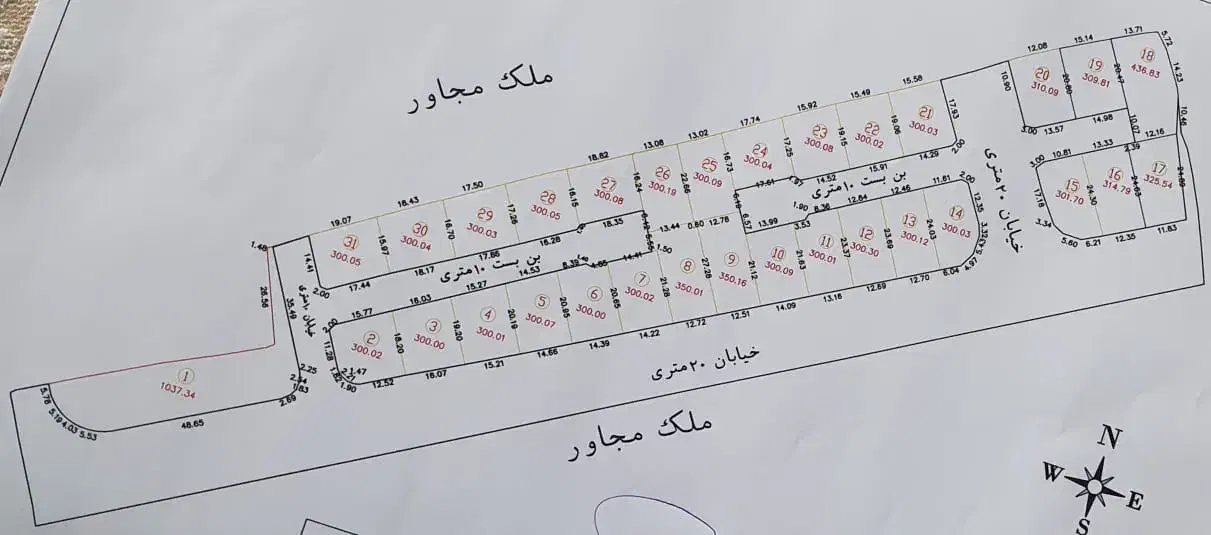 ملک مجاور
13.71
5.72
15.14
12.08
18
436.83
14.23
19
309.81
20.47
20
310.09
20.80
10.90
15.58
15.49
15.92
17.74
13.02
13.08
18.82
17.50
18.43
19.07
1.48
21
300.03
17.93
22
300.02
19.06
23
300.08
19.15
24
300.04
17.25
25
300.09
16.73
26
300.19
22.66
27
300.08
16.24
28
300.05
16.15
29
300.03
17.26
30
300.04
16.70
31
300.05
15.97
14.41
10.46
14.98
13.57
3.00
10.07
12.16
2.39
13.33
10.81
3.00
2.00
14.29
15.91
14.52
1.93
17.61
بن بست ۱۰ متری
خیابان ۲۰ متری
17
325.54
24.89
16
314.79
24.63
15
301.70
24.30
17.18
3.34
5.60
6.21
12.35
11.83
2.00
11.61
12.46
12.64
6.36
1.90
3.53
13.99
6.19
6.57
12.78
0.60
13.44
6.12
5.55
1.50
18.35
16.28
17.66
18.17
17.44
2.00
بن بست ۱۰ متری
14.41
4.65
6.39
14.53
15.27
16.03
15.77
2.00
خیابان ۱۰ متری
14
300.03
12.35
3.32
5.43
4.97
13
300.12
24.03
12
300.30
23.69
11
300.01
23.37
10
300.09
21.63
9
350.16
21.12
8
350.01
27.28
7
300.02
21.28
6
300.00
20.65
5
300.07
20.95
4
300.01
20.19
3
300.00
19.20
2
300.02
18.20
11.28
1.82
2.21
1.47
1.90
26.56
35.49
2.25
2.54
1.83
2.69
1
1037.34
5.78
5.19
4.03
5.53
48.65
12.52
16.07
15.21
14.66
14.39
14.22
12.72
12.51
14.09
13.16
12.69
12.70
6.04
خیابان ۲۰ متری
ملک مجاور
N
W
E
S